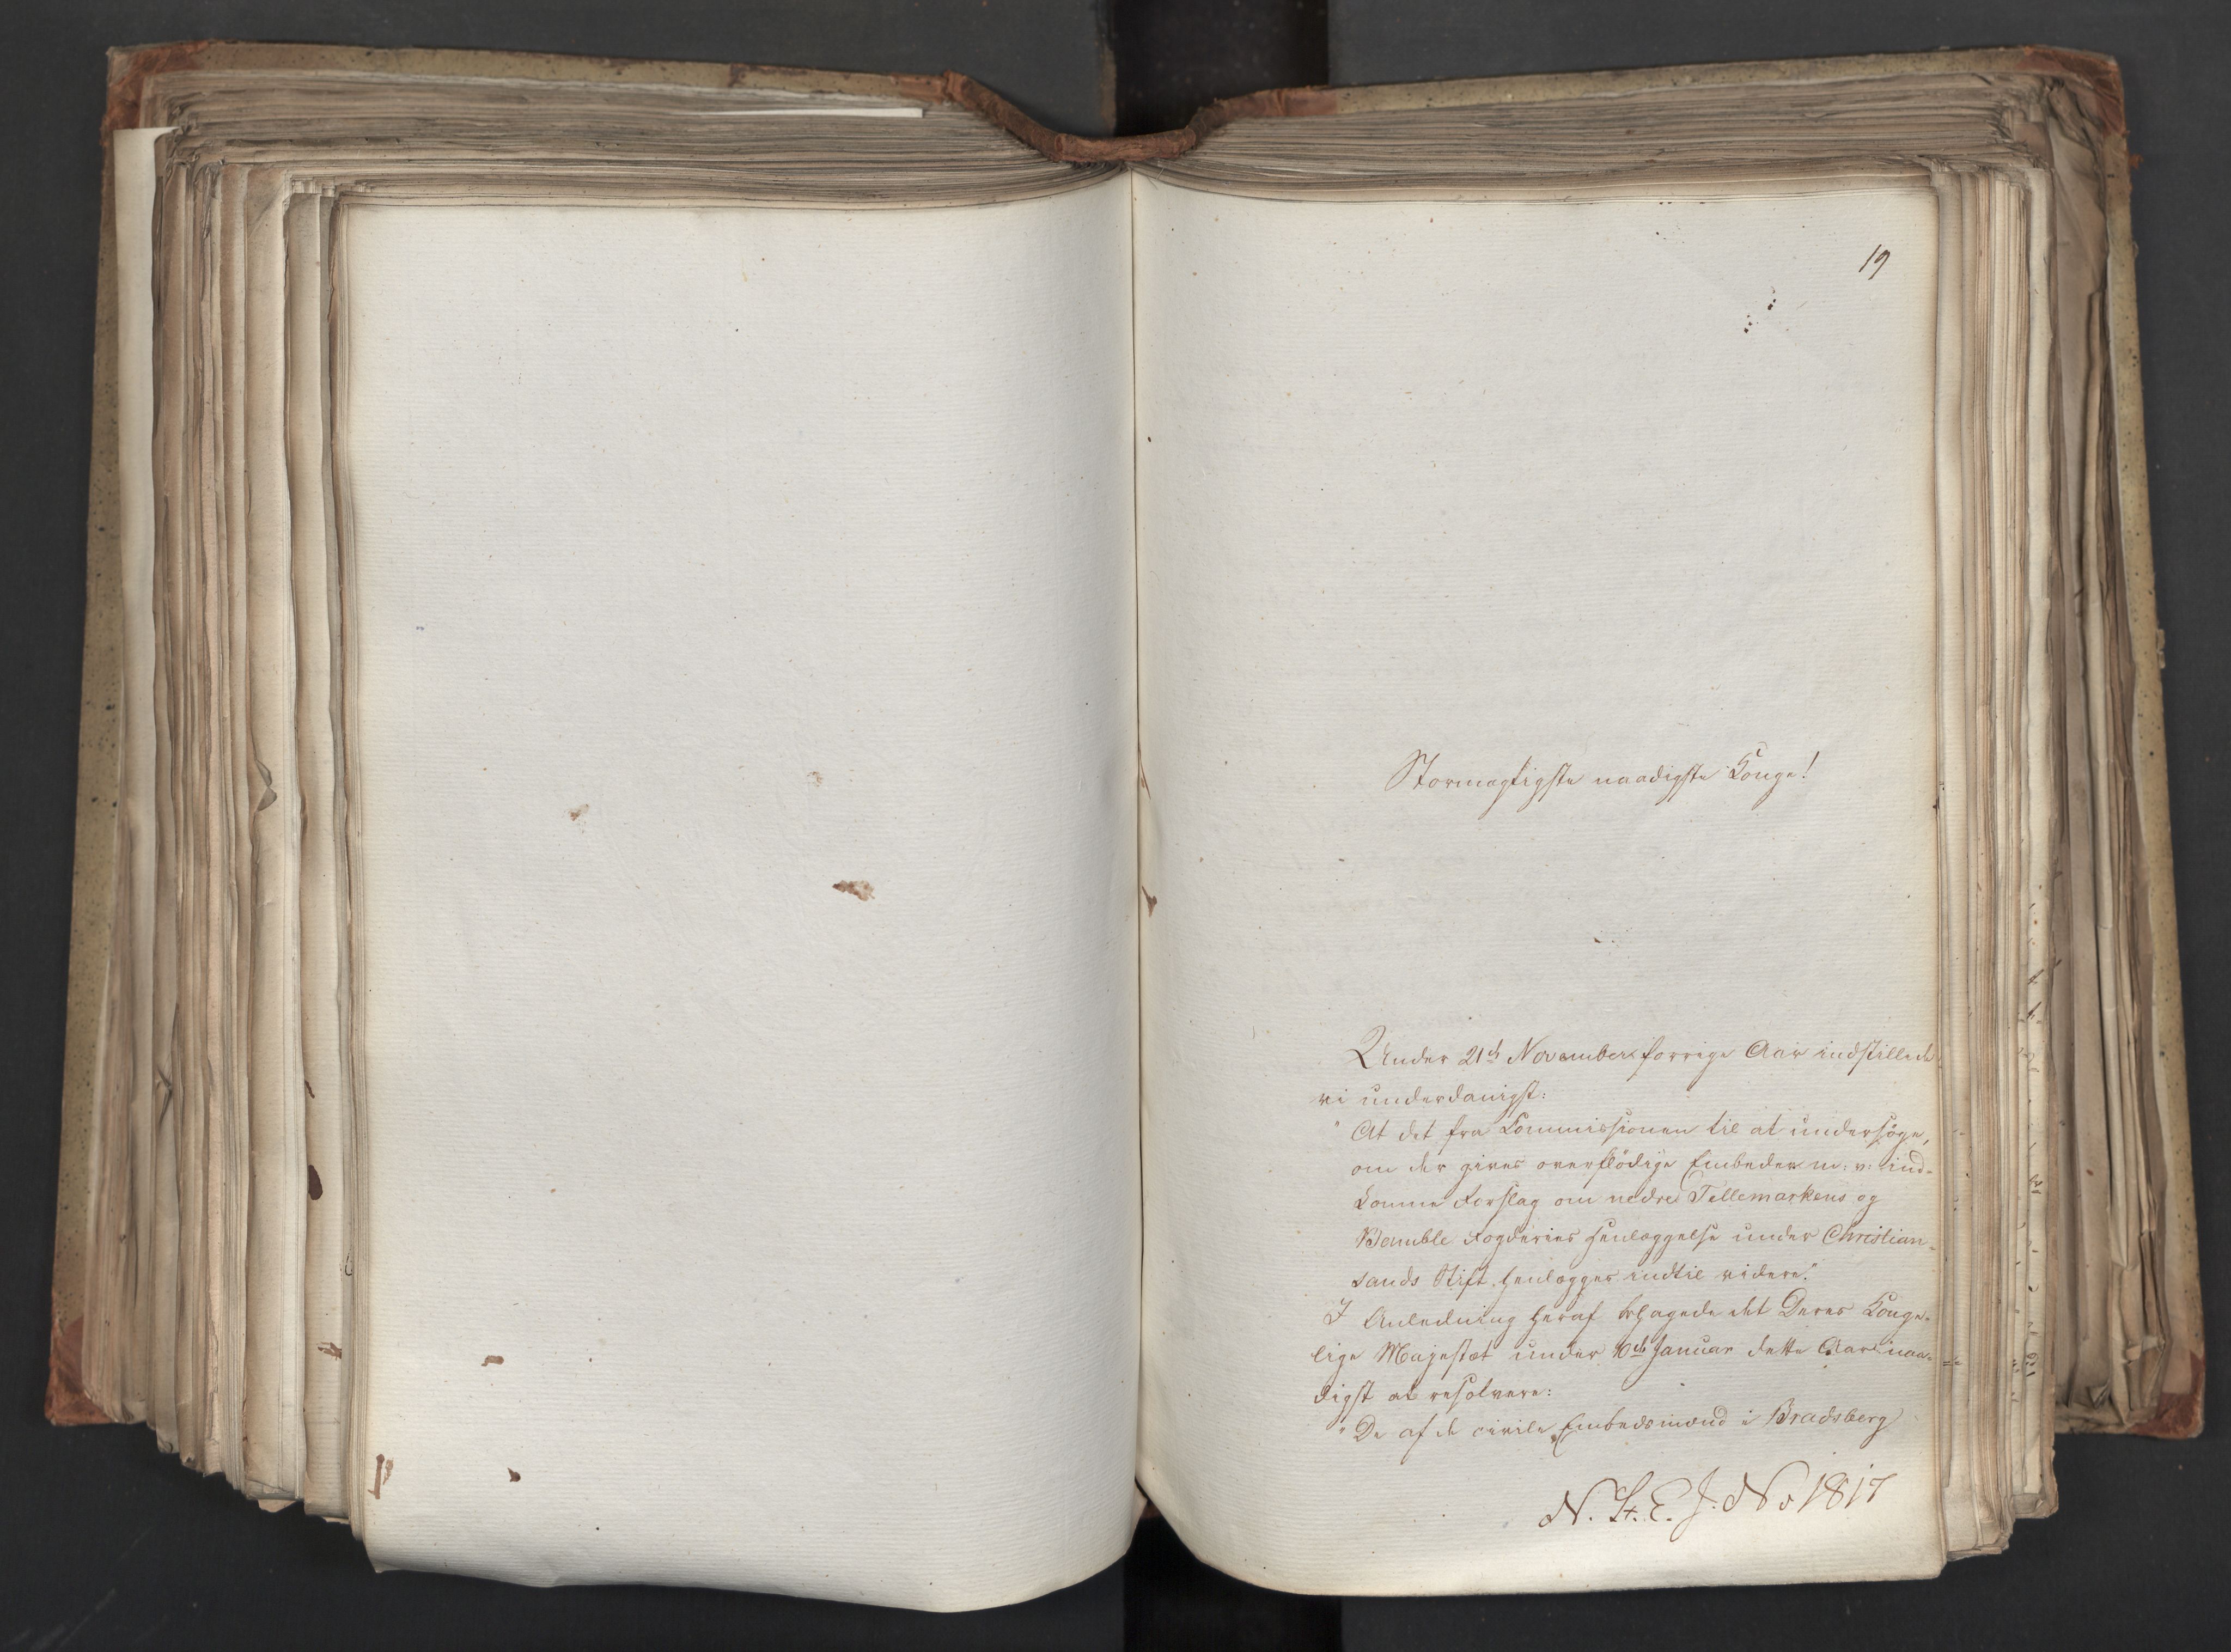 19
Stormægtigste naadigste Konge!
Under 21de November forrige Aar indstillede
vi underdanigst:
"At det fra Commissionen til at undersøge,
om der gives overflödige Embeder m: v: ind-
komne Forslag om nedre Tellemarkens og
Bamble Fogderies Henlæggelse under Christian-
sands Stift, henlægges indtil videre."
I Anledning heraf behagede det Deres Konge-
lige Majestæt under 10de Januar dette Aar naa-
digst at resolvere:
"De af de civile Embedsmænd i Bradsberg
N. St. E. J. No 1817